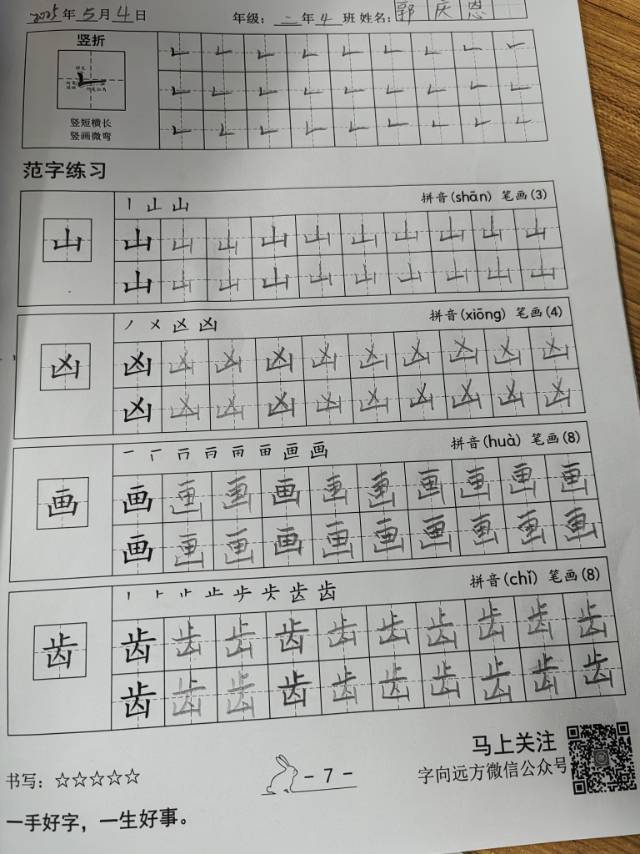 2025年5月4日 年级:二年4班 姓名:郭庆恩
竖折
竖短横长
竖画微弯
范字练习
山 丨 山 山 拼音(shān) 笔画(3)
山 山 山 山 山 山 山 山 山 山
山 山 山 山 山 山 山 山 山 山
凶 ノ 㐅 凶 凶 拼音(xiōng) 笔画(4)
凶 凶 凶 凶 凶 凶 凶 凶 凶 凶
凶 凶 凶 凶 凶 凶 凶 凶 凶 凶
画 拼音(huà) 笔画(8)
画 画 画 画 画 画 画 画 画 画
画 画 画 画 画 画 画 画 画 画
齿 拼音(chǐ) 笔画(8)
齿 齿 齿 齿 齿 齿 齿 齿 齿 齿
齿 齿 齿 齿 齿 齿 齿 齿 齿 齿
书写:☆☆☆☆☆
- 7 -
马上关注
字向远方微信公众号
一手好字，一生好事。